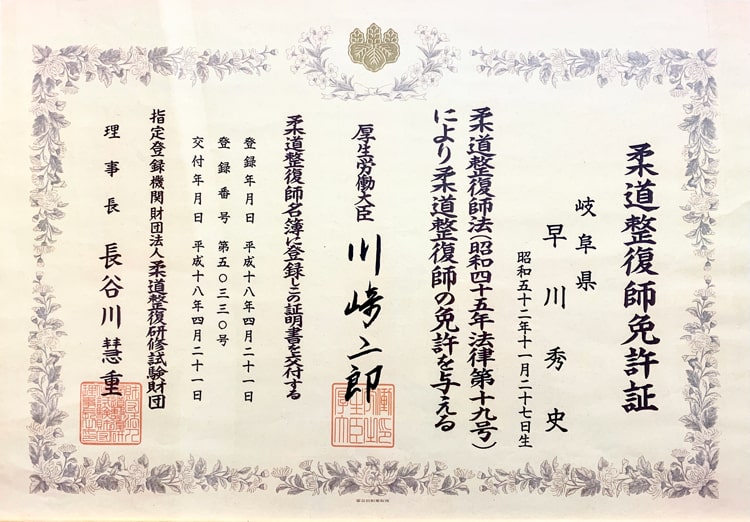 柔道整復師免許証
岐阜県
早川秀史
昭和五十二年十一月二十七日生
柔道整復師法(昭和四十五年法律第十九号)
により柔道整復師の免許を与える
厚生労働大臣 川崎二郎
柔道整復師名簿に登録しこの証明書を交付する
登録年月日 平成十八年四月二十一日
登録番号 第五〇三三〇号
交付年月日 平成十八年四月二十一日
指定登録機関財団法人柔道整復研修試験財団
理事長 長谷川慧重